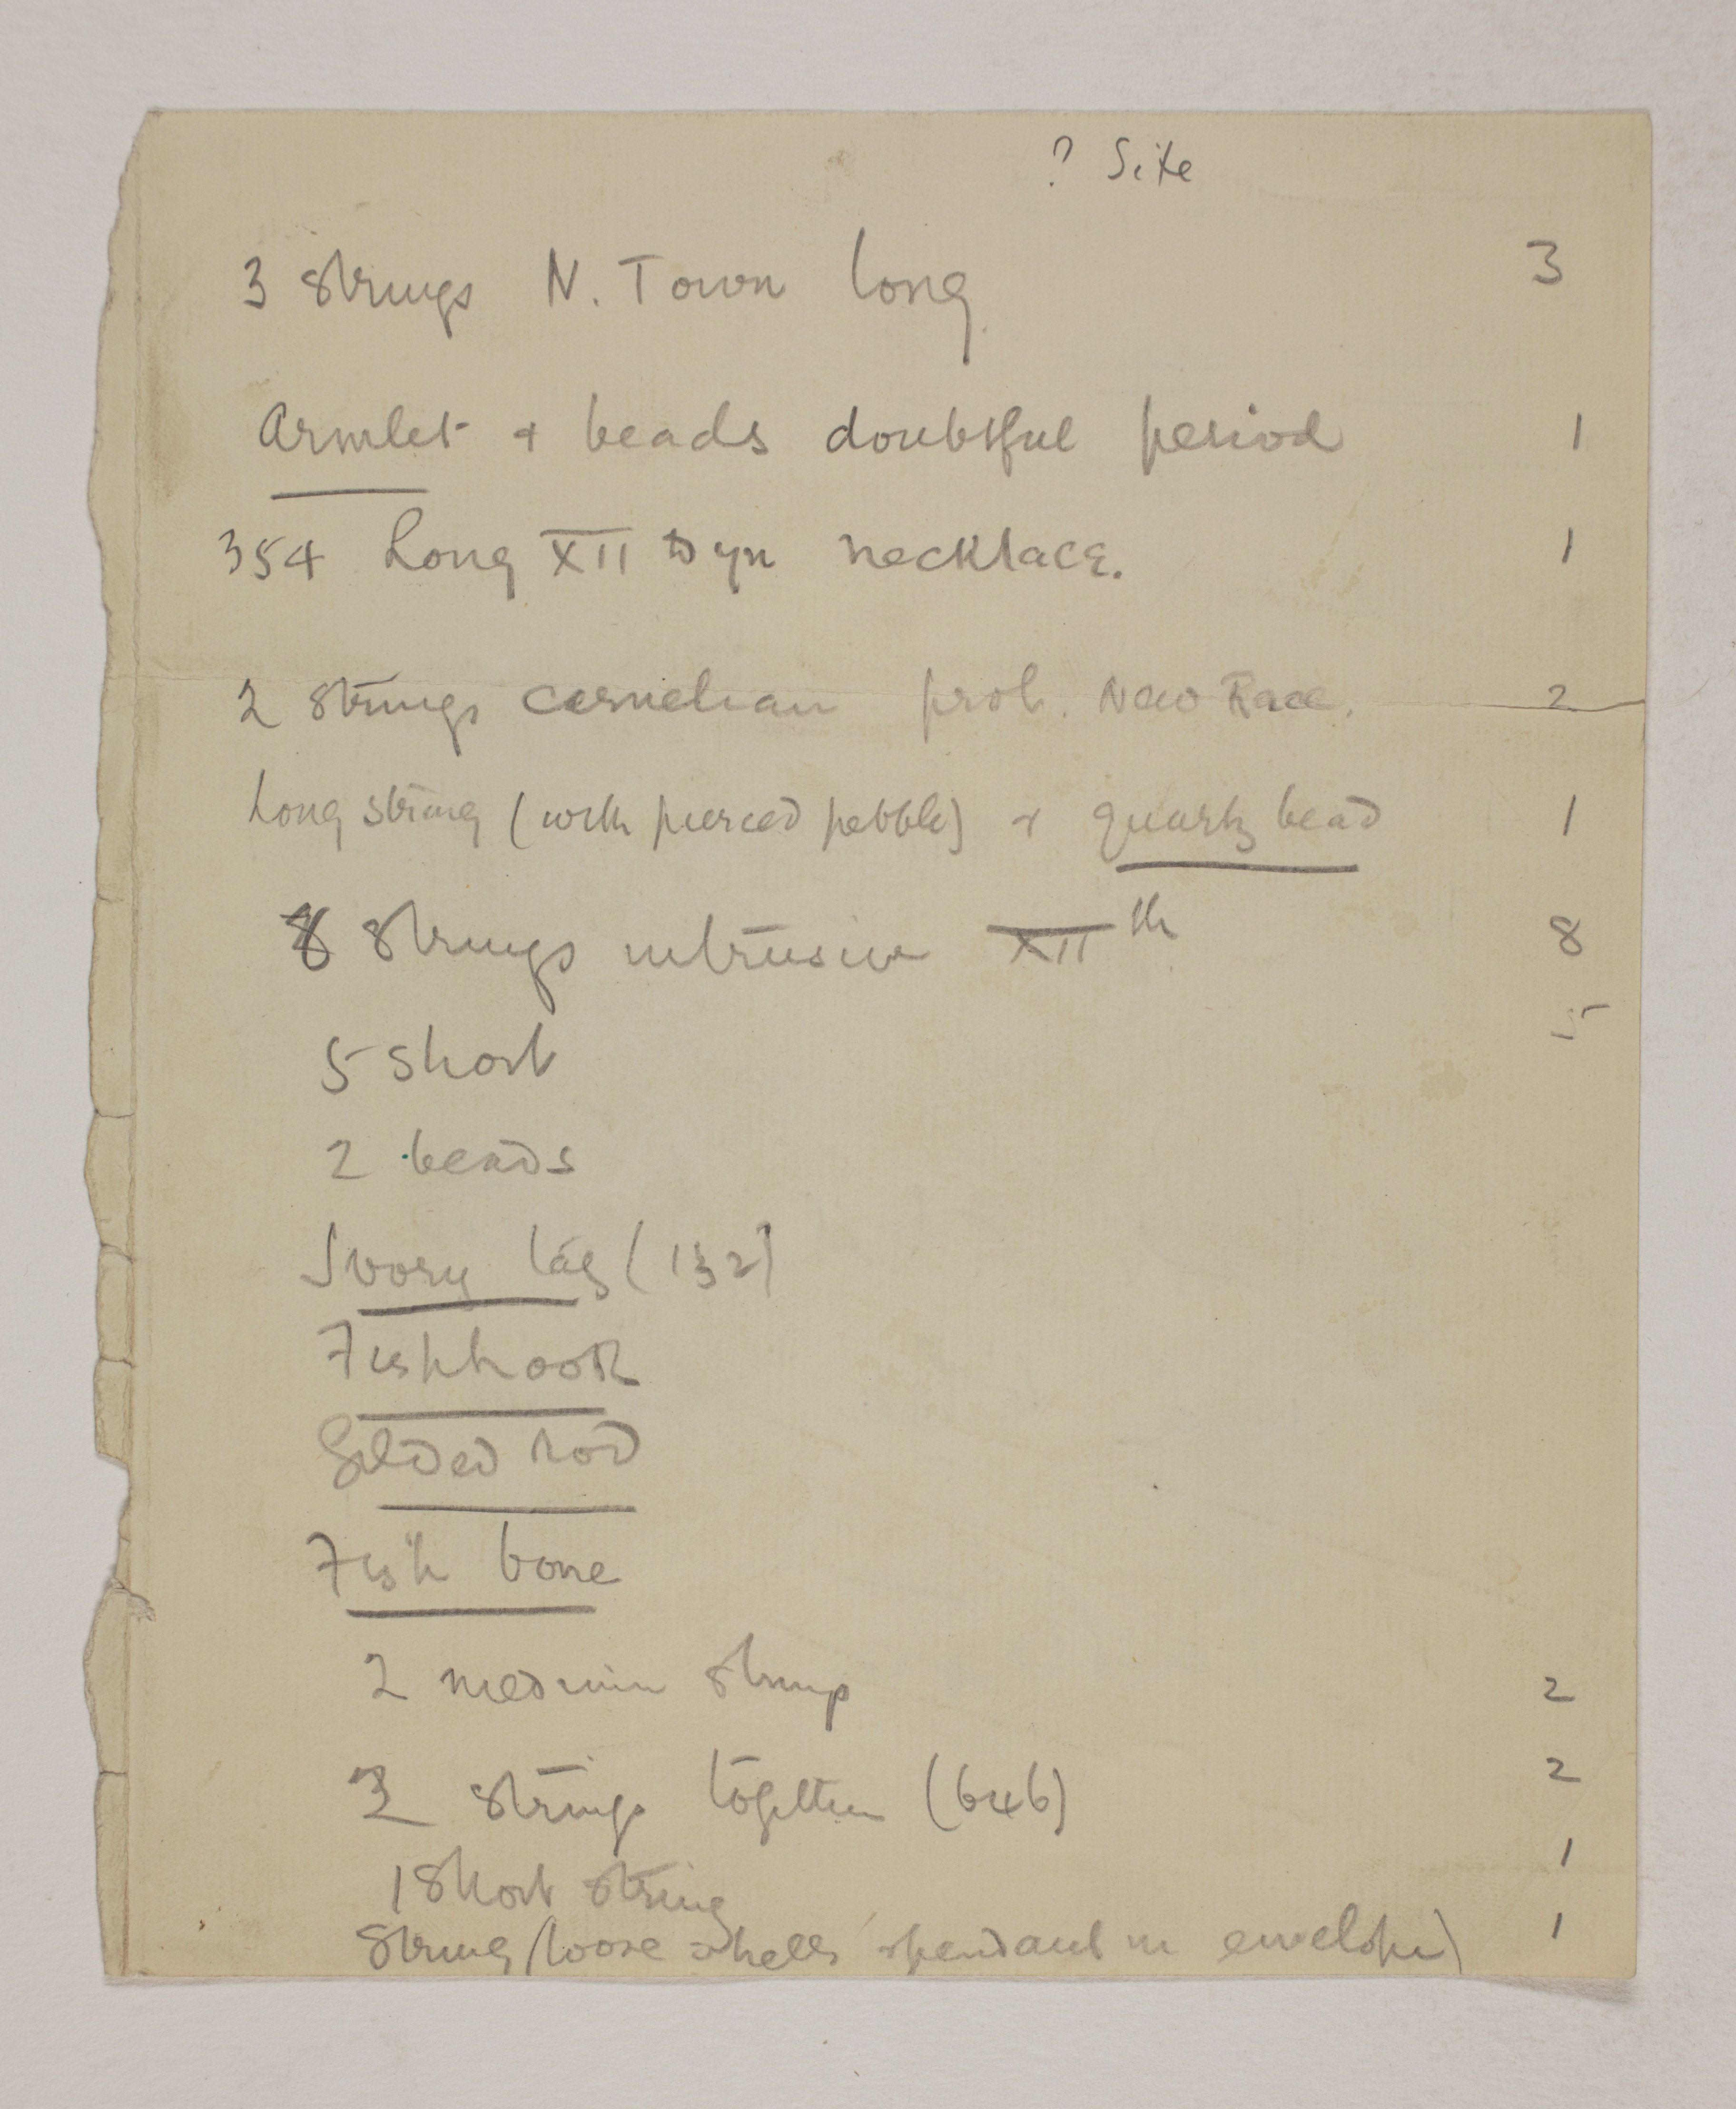 ? Site
3 Strings N. Town long. 3
Armlet + beads doubtful period 1
354 Long XII Dyn necklace. 1
2 Strings carnelian prob. New Race. 2
Long string (with pierced pebble) + quartz bead 1
8 Strings intrusive XIIth 8
5 short 5
2 beads
Ivory tag (132)
Fishhook
Gilded rod
Fish bone
2 medium strings 2
2 strings together (646) 2
1 Short string 1
String (loose shells + pendant in envelope) 1